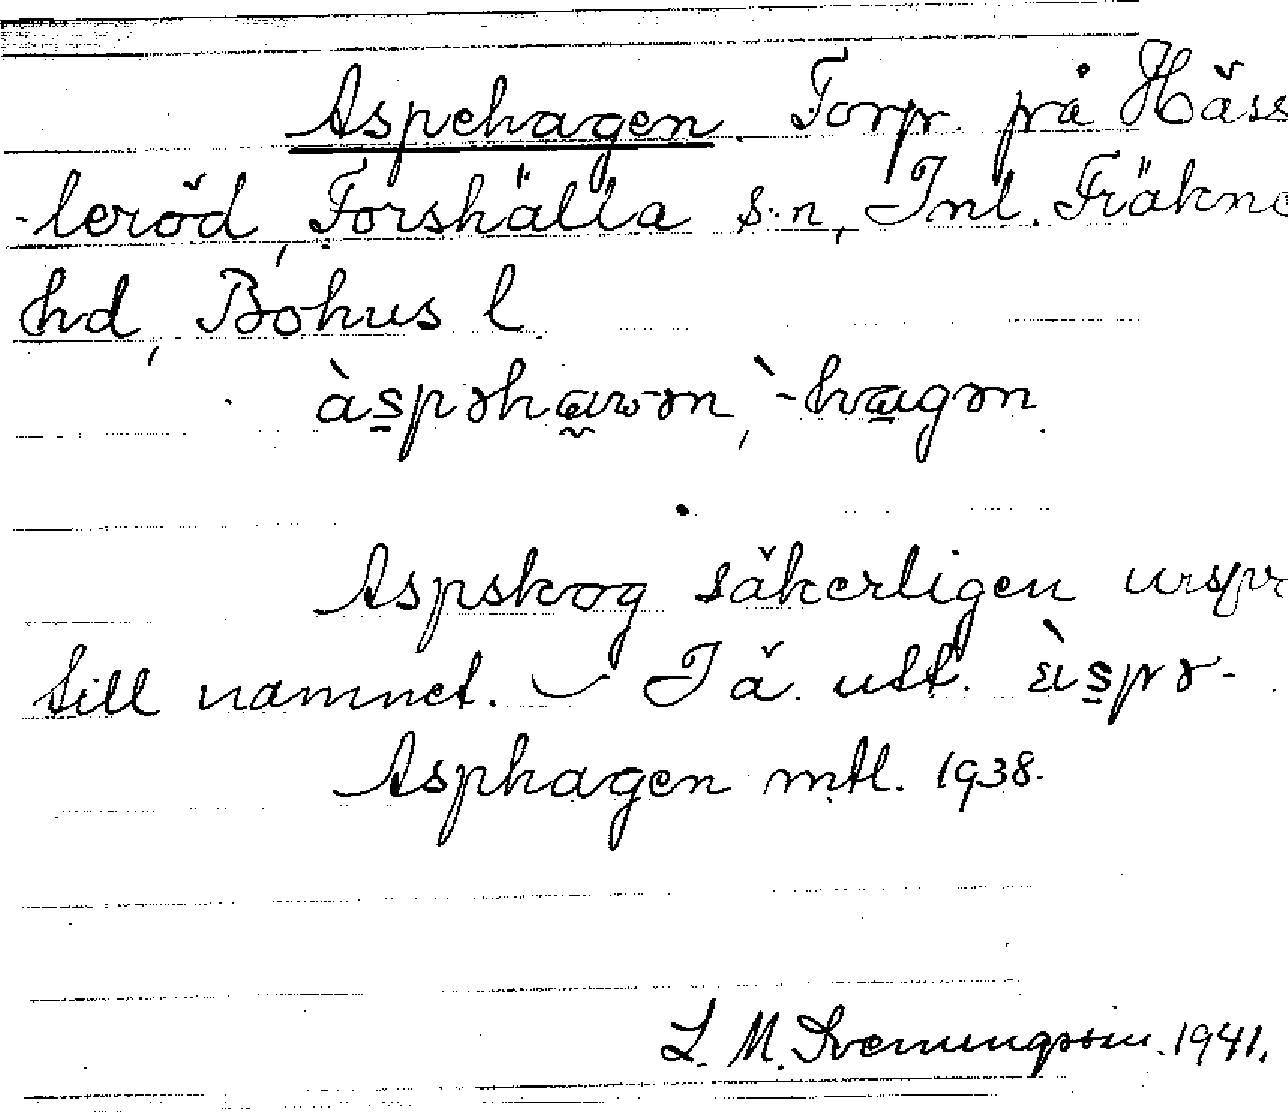 Aspehagen. Torp. på Häss
-leröd, Forshälla s:n, Inl. Fräkne
hd, Bohus l
àspəhawən, `-hagən.
Aspskog säkerligen urspr
till namnet. I ä. utt. æ̀spə-
Asphagen mtl. 1938.
L. M. Svenungsson. 1941.